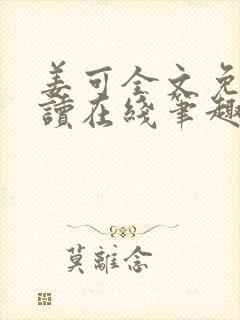 姜可全文免
讀在綫筆趣
莫離念